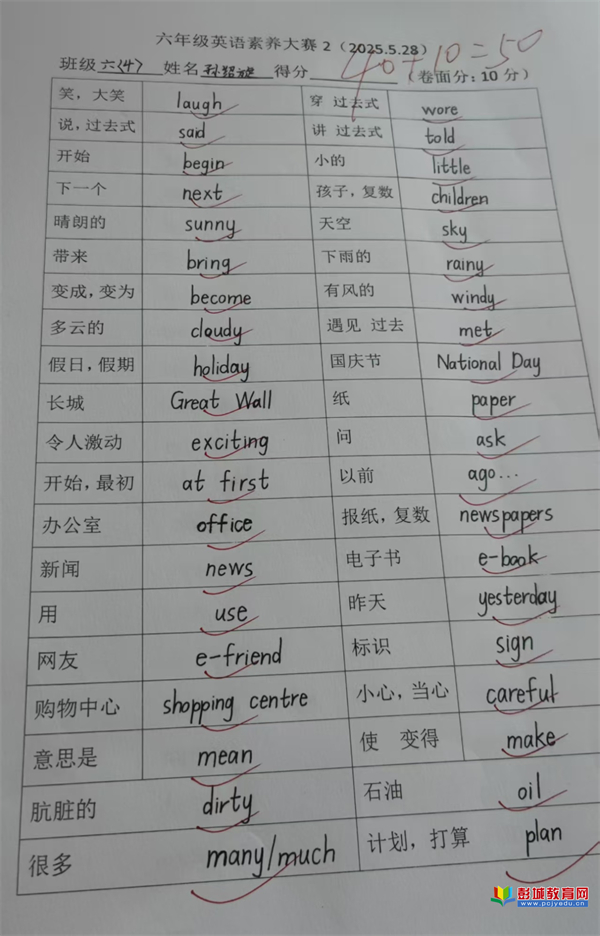 六年级英语素养大赛2（2025.5.28）
40+10=50
班级 六(4) 姓名 得分 （卷面分：10分）
笑，大笑 laugh 穿 过去式 wore
说，过去式 said 讲 过去式 told
开始 begin 小的 little
下一个 next 孩子，复数 children
晴朗的 sunny 天空 sky
带来 bring 下雨的 rainy
变成，变为 become 有风的 windy
多云的 cloudy 遇见 过去 met
假日，假期 holiday 国庆节 National Day
长城 Great Wall 纸 paper
令人激动 exciting 问 ask
开始，最初 at first 以前 ago...
办公室 office 报纸，复数 newspapers
新闻 news 电子书 e-book
用 use 昨天 yesterday
网友 e-friend 标识 sign
购物中心 shopping centre 小心，当心 careful
意思是 mean 使 变得 make
肮脏的 dirty 石油 oil
很多 many/much 计划，打算 plan
彭城教育网
www.pcjyedu.cn